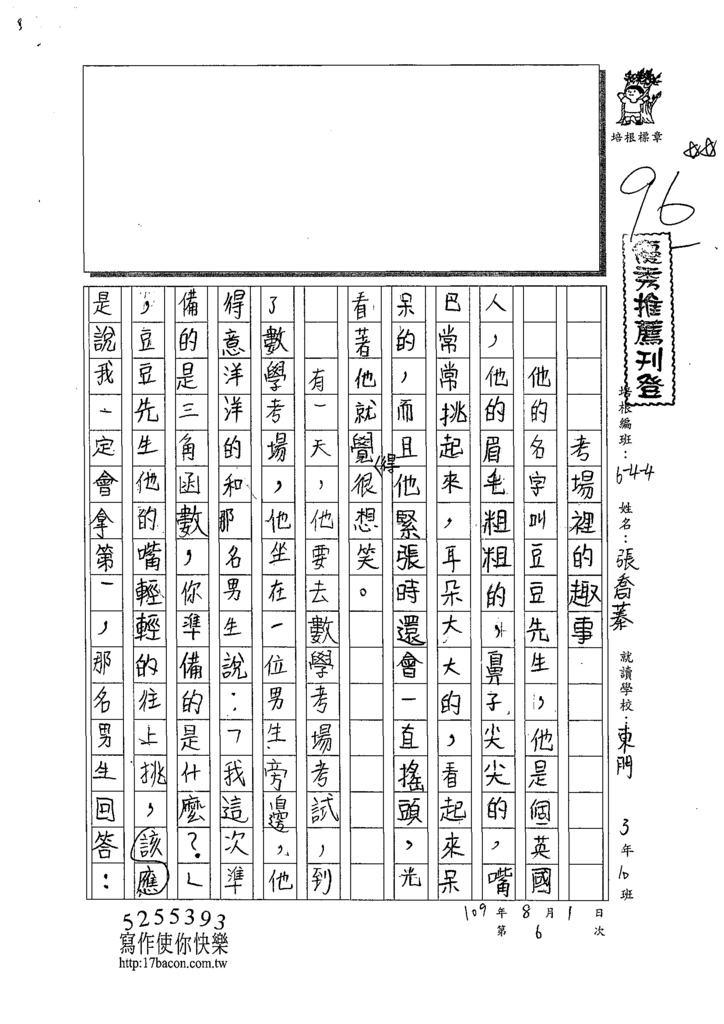 培根標章
96
優秀推薦刊登
培根編班：6-4-4 姓名：張喬蓁 就讀學校：東門 3年10班
考場裡的趣事
他的名字叫豆豆先生，他是個英國
人，他的眉毛粗粗的，鼻子尖尖的，嘴
巴常常挑起來，耳朵大大的，看起來呆
呆的，而且他緊張時還會一直搖頭，光
看著他就覺得很想笑。
有一天，他要去數學考場考試，到
了數學考場，他坐在一位男生旁邊，他
得意洋洋的和那名男生說：「我這次準
備的是三角函數，你準備的是什麼？」
，豆豆先生他的嘴輕輕的往上挑，該應
是說我一定會拿第一，那名男生回答：
109年8月1日
第6次
5255393
寫作使你快樂
http:17bacon.com.tw